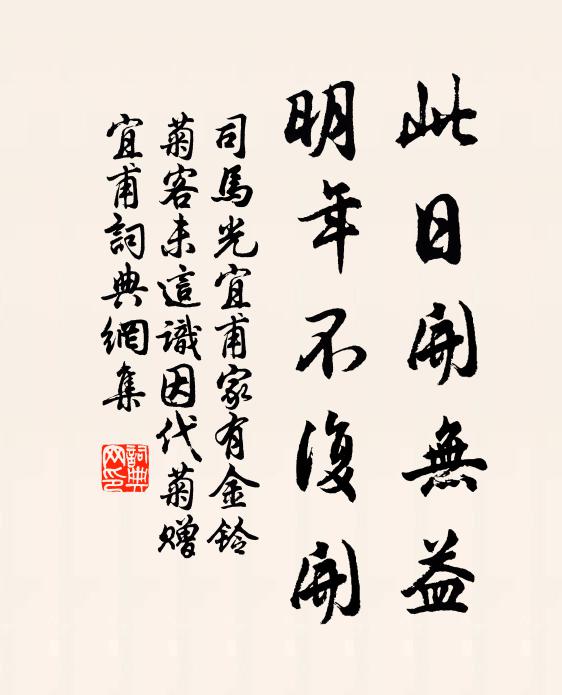 此日開無益
明年不復開
司馬光宜甫家有金鈴
菊客未這識因代菊赠
宜甫詞典網集
詞典網印